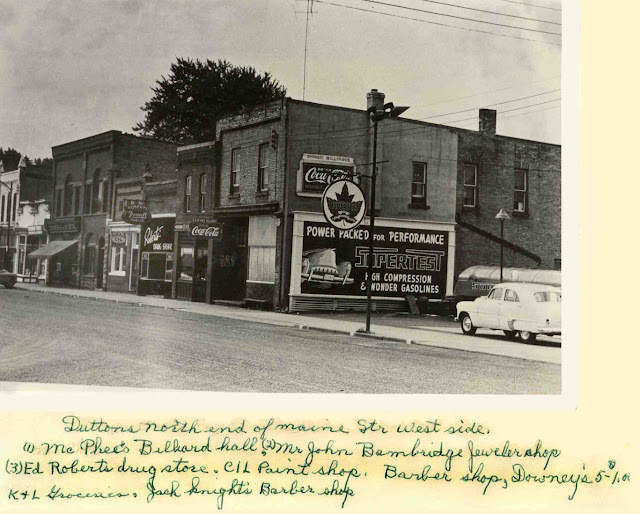 DRINK
Coca-Cola
SUPERTEST
POWER PACKED FOR PERFORMANCE
SUPERTEST
HIGH COMPRESSION
& WONDER GASOLINES
Coca-Cola
Roberts
DRUG STORE
Duttons north end of maine Str west side.
(1) Mc Phee's Billiard hall. (2) Mr John Bambridge Jeweler shop
(3) Ed Roberts drug store. CIL Paint shop. Barber shop, Downey's 5-1.00
K+L Groceries. Jack Knight's Barber shop